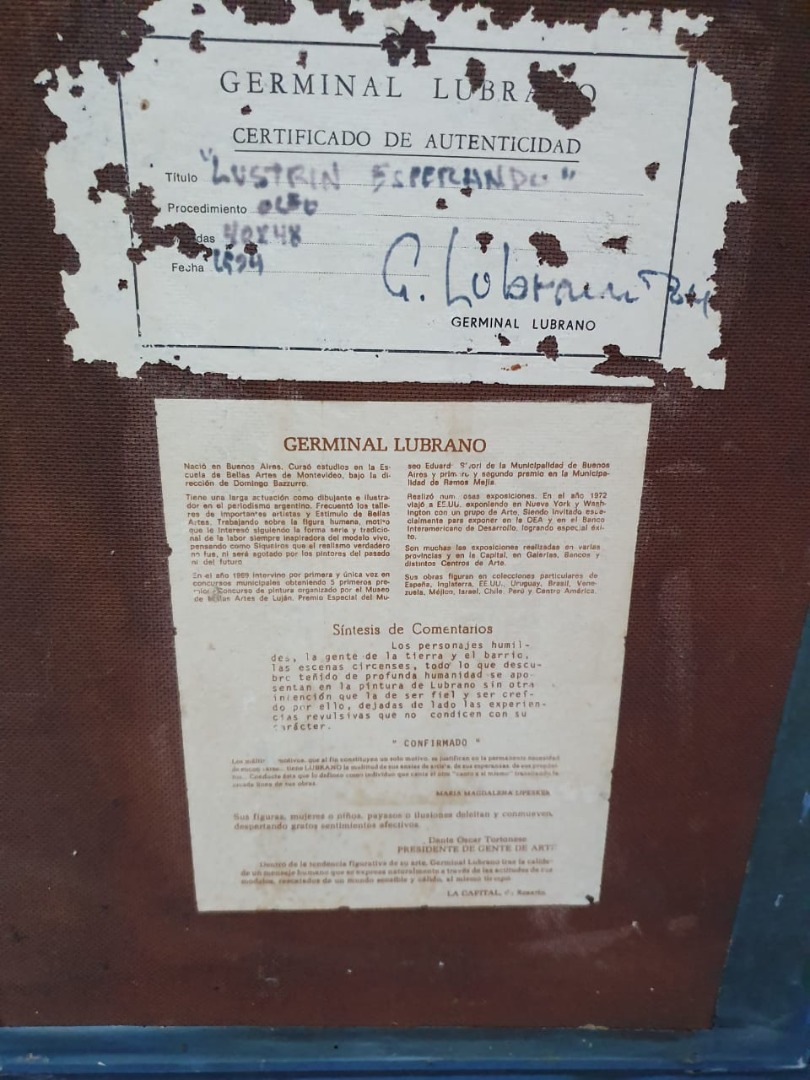 GERMINAL LUBRANO
CERTIFICADO DE AUTENTICIDAD
Título "LUSTRIN ESPERANDO"
Procedimiento OLEO
das 40X48
Fecha
G. Lubrano
GERMINAL LUBRANO
GERMINAL LUBRANO
Nació en Buenos Aires. Cursó estudios en la Es-
cuela de Bellas Artes de Montevideo, bajo la di-
rección de Domingo Bazzurro.
Tiene una larga actuación como dibujante e ilustra-
dor en el periodismo argentino. Frecuentó los talle-
res de importantes artistas y Estímulo de Bellas
Artes. Trabajando sobre la figura humana, motivo
que le interesó siguiendo la forma seria y tradicio-
nal de la labor siempre inspiradora del modelo vivo,
pensando como Siqueiros que el realismo verdadero
no fue, ni será agotado por los pintores del pasado
ni del futuro
En el año 1969 intervino por primera y única vez en
concursos municipales obteniendo 3 primeros pre-
Concurso de pintura organizado por el Museo
de Bellas Artes de Luján. Premio Especial del Mu-
seo Eduardo Sívori de la Municipalidad de Buenos
Aires y primero y segundo premio en la Municipa-
lidad de Ramos Mejía.
Realizó numerosas exposiciones. En el año 1972
viajó a EE.UU. exponiendo en Nueva York y Wash-
ington con un grupo de Arte. Siendo invitado espe-
cialmente para exponer en la OEA y en el Banco
Interamericano de Desarrollo, logrando especial éxi-
to.
Son muchas las exposiciones realizadas en varias
provincias y en la Capital, en Galerías, Bancos y
distintos Centros de Arte.
Sus obras figuran en colecciones particulares de
España, Inglaterra, EE.UU., Uruguay, Brasil, Vene-
zuela, Méjico, Israel, Chile, Perú y Centro América.
Síntesis de Comentarios
Los personajes humil-
des, la gente de la tierra y el barrio,
las escenas circenses, todo lo que descu-
bre teñido de profunda humanidad se apo-
sentan en la pintura de Lubrano sin otra
intención que la de ser fiel y ser creí-
do por ello, dejadas de lado las experien-
cias revulsivas que no condicen con su
carácter.
" CONFIRMADO "
que al fin constituyen un solo motivo, se justifican en la permanente necesidad
tiene LUBRANO la multitud de sus ansias de artista, de sus esperanzas
Conducta ésta que lo define como individuo que
MARIA MAGDALENA
Sus figuras, mujeres o niños, payasos o ilusiones deleitan y conmueven,
despertando gratos sentimientos afectivos.
Dante Oscar Tortonese
PRESIDENTE DE GENTE DE ARTE
Dentro de la tendencia figurativa de su arte, Germinal Lubrano trae la calidez
de un mensaje humano que se expresa naturalmente a través de las actitudes de sus
modelos, rescatados de un mundo sensible y cálido, al mismo tiempo.
LA CAPITAL, Rosario